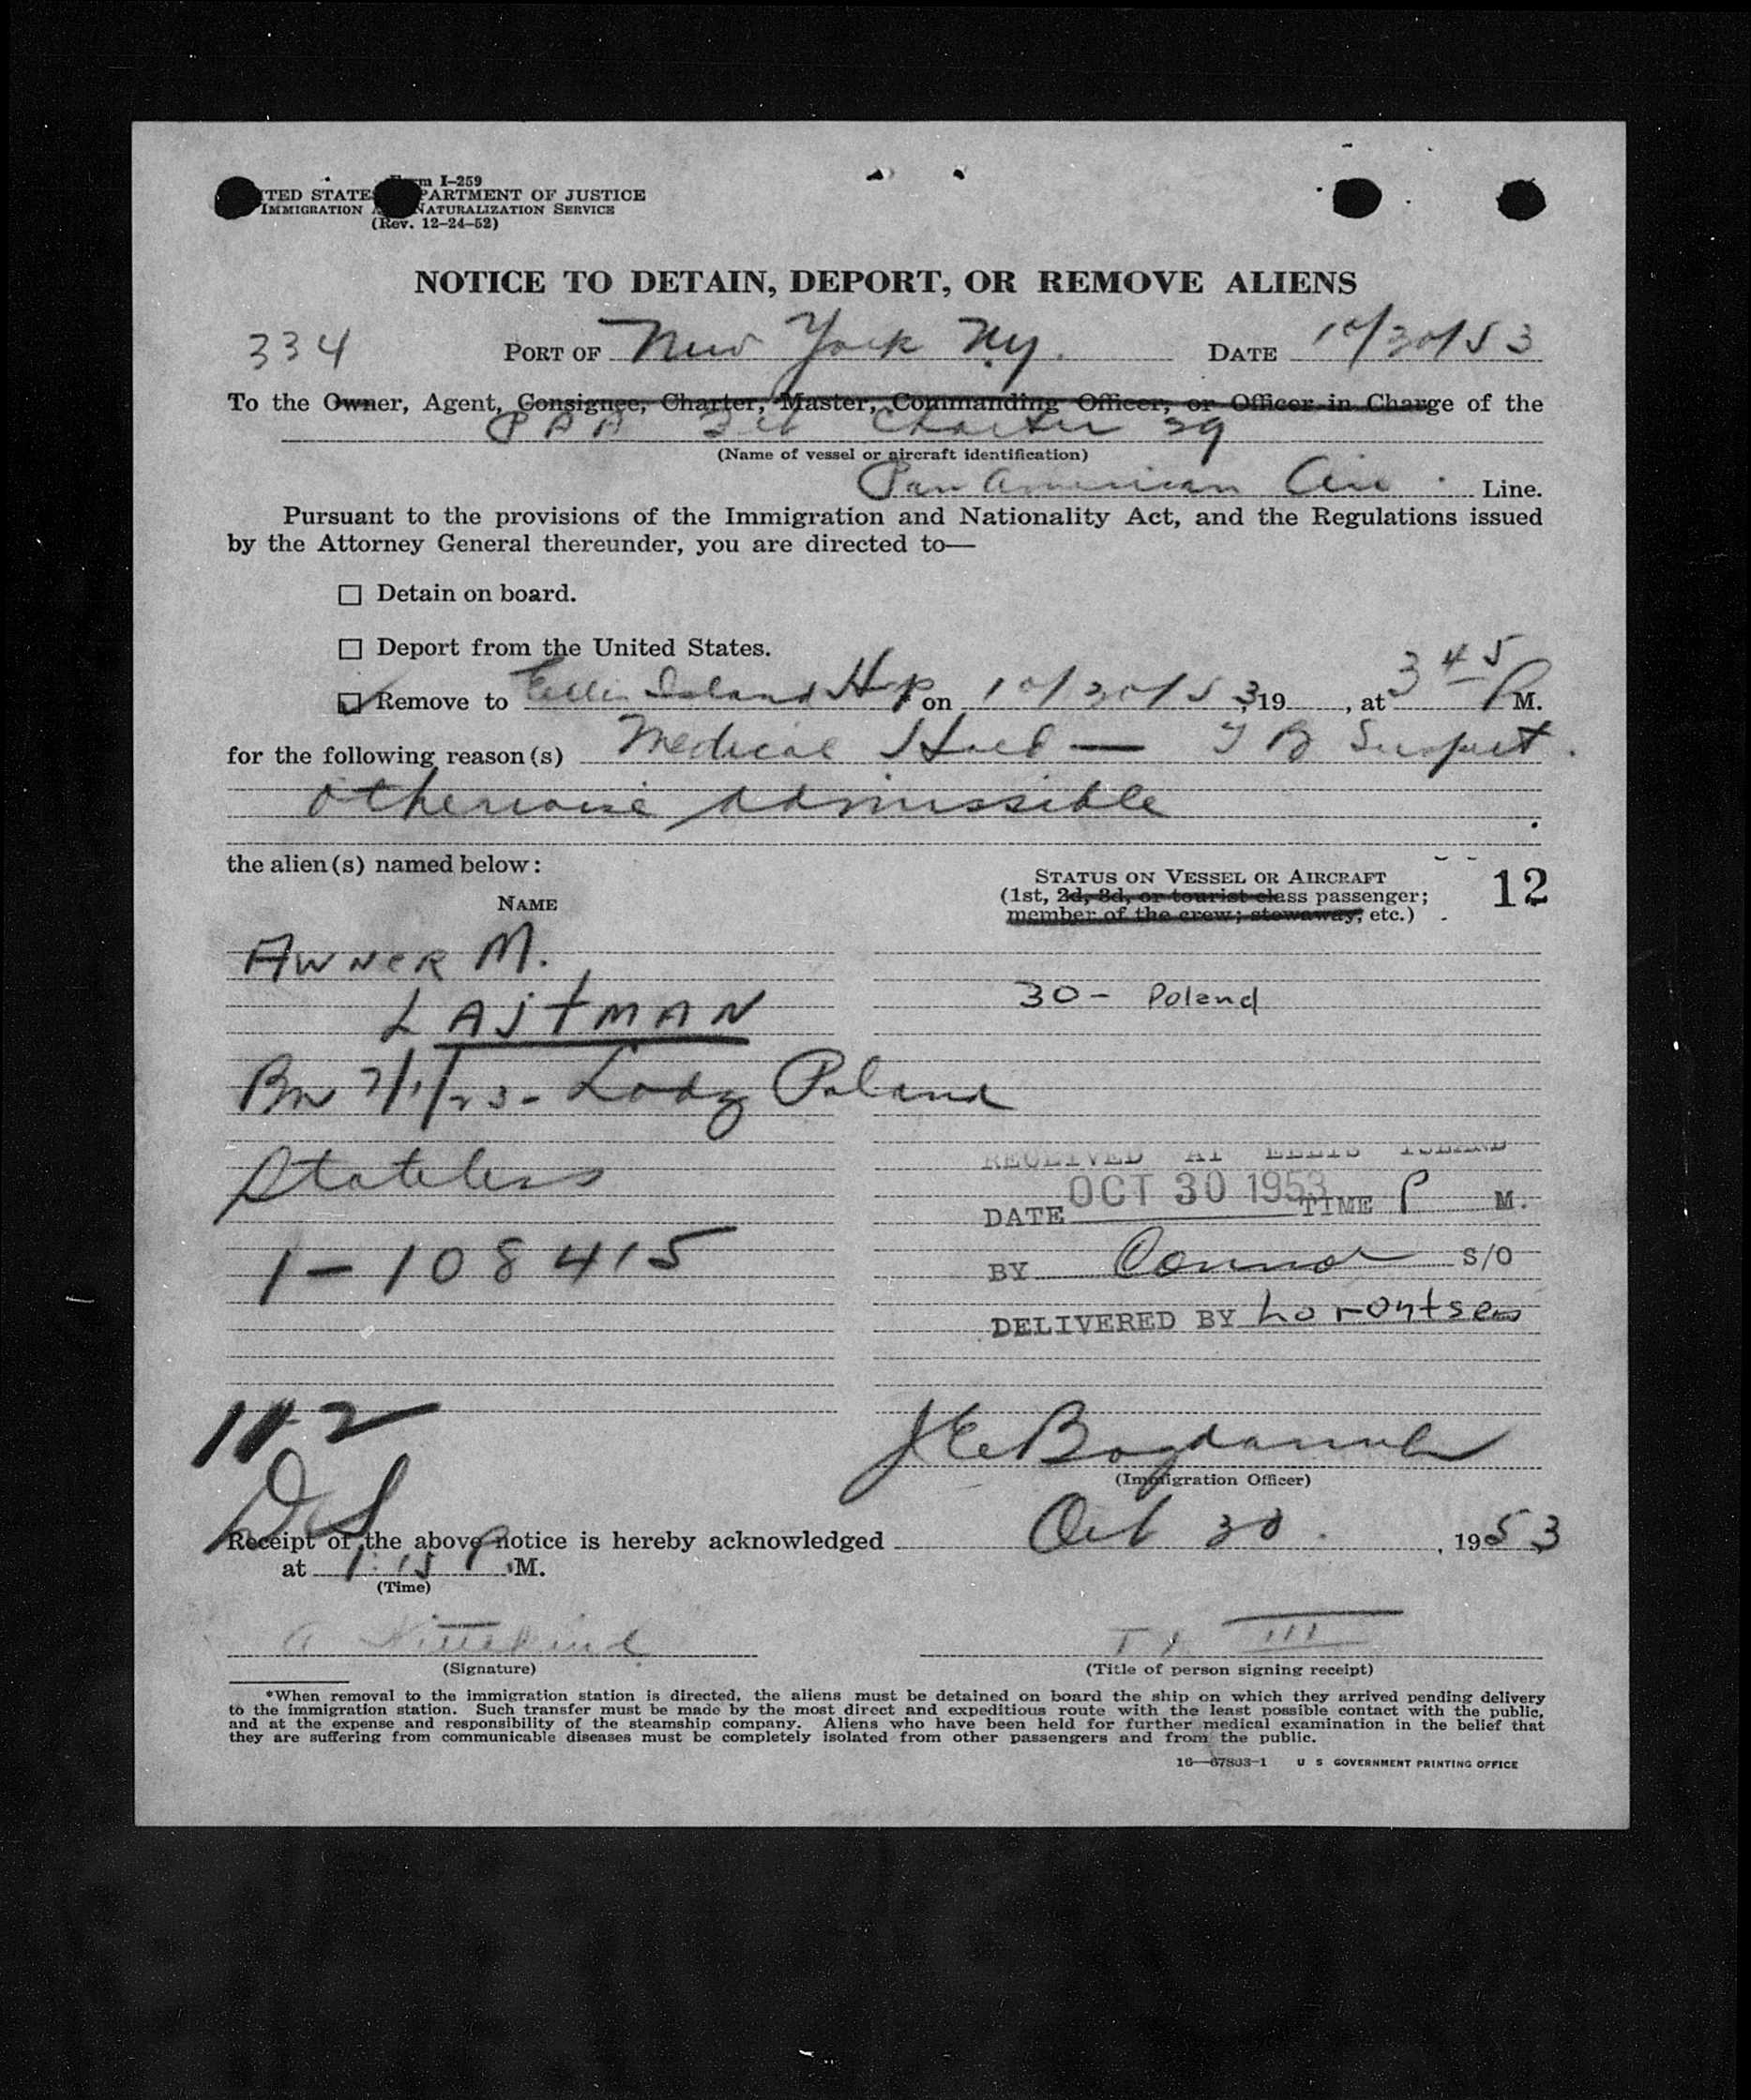 Form I-259
UNITED STATES DEPARTMENT OF JUSTICE
IMMIGRATION AND NATURALIZATION SERVICE
(Rev. 12-24-52)
NOTICE TO DETAIN, DEPORT, OR REMOVE ALIENS
334 PORT OF New York NY. DATE 10/30/53
To the Owner, Agent, Consignee, Charter, Master, Commanding Officer, or Officer in Charge of the
PAA Charter 29
(Name of vessel or aircraft identification)
Pan American Air Line.
Pursuant to the provisions of the Immigration and Nationality Act, and the Regulations issued
by the Attorney General thereunder, you are directed to—
☐ Detain on board.
☐ Deport from the United States.
☑ Remove to Ellis Island Hosp on 10/30/53, 19 , at 3 45 P M.
for the following reason(s) Medical Hold — TB Suspect.
otherwise admissible
the alien(s) named below:
STATUS ON VESSEL OR AIRCRAFT
(1st, 2d, 3d, or tourist class passenger;
member of the crew; stowaway, etc.)
12
NAME
AWNER M.
LAJTMAN
30- Poland
Bn 7/1/23- Lodz Poland
Stateless
RECEIVED AT ELLIS ISLAND
DATE OCT 30 1953 TIME P M.
1-108415
BY Connor S/O
DELIVERED BY Lorontsen
11-2
DS
(Immigration Officer)
Receipt of the above notice is hereby acknowledged Oct 30. , 1953
at 1:15 P.M.
(Time)
III
(Signature) (Title of person signing receipt)
*When removal to the immigration station is directed, the aliens must be detained on board the ship on which they arrived pending delivery
to the immigration station. Such transfer must be made by the most direct and expeditious route with the least possible contact with the public,
and at the expense and responsibility of the steamship company. Aliens who have been held for further medical examination in the belief that
they are suffering from communicable diseases must be completely isolated from other passengers and from the public.
16—67803-1 U S GOVERNMENT PRINTING OFFICE